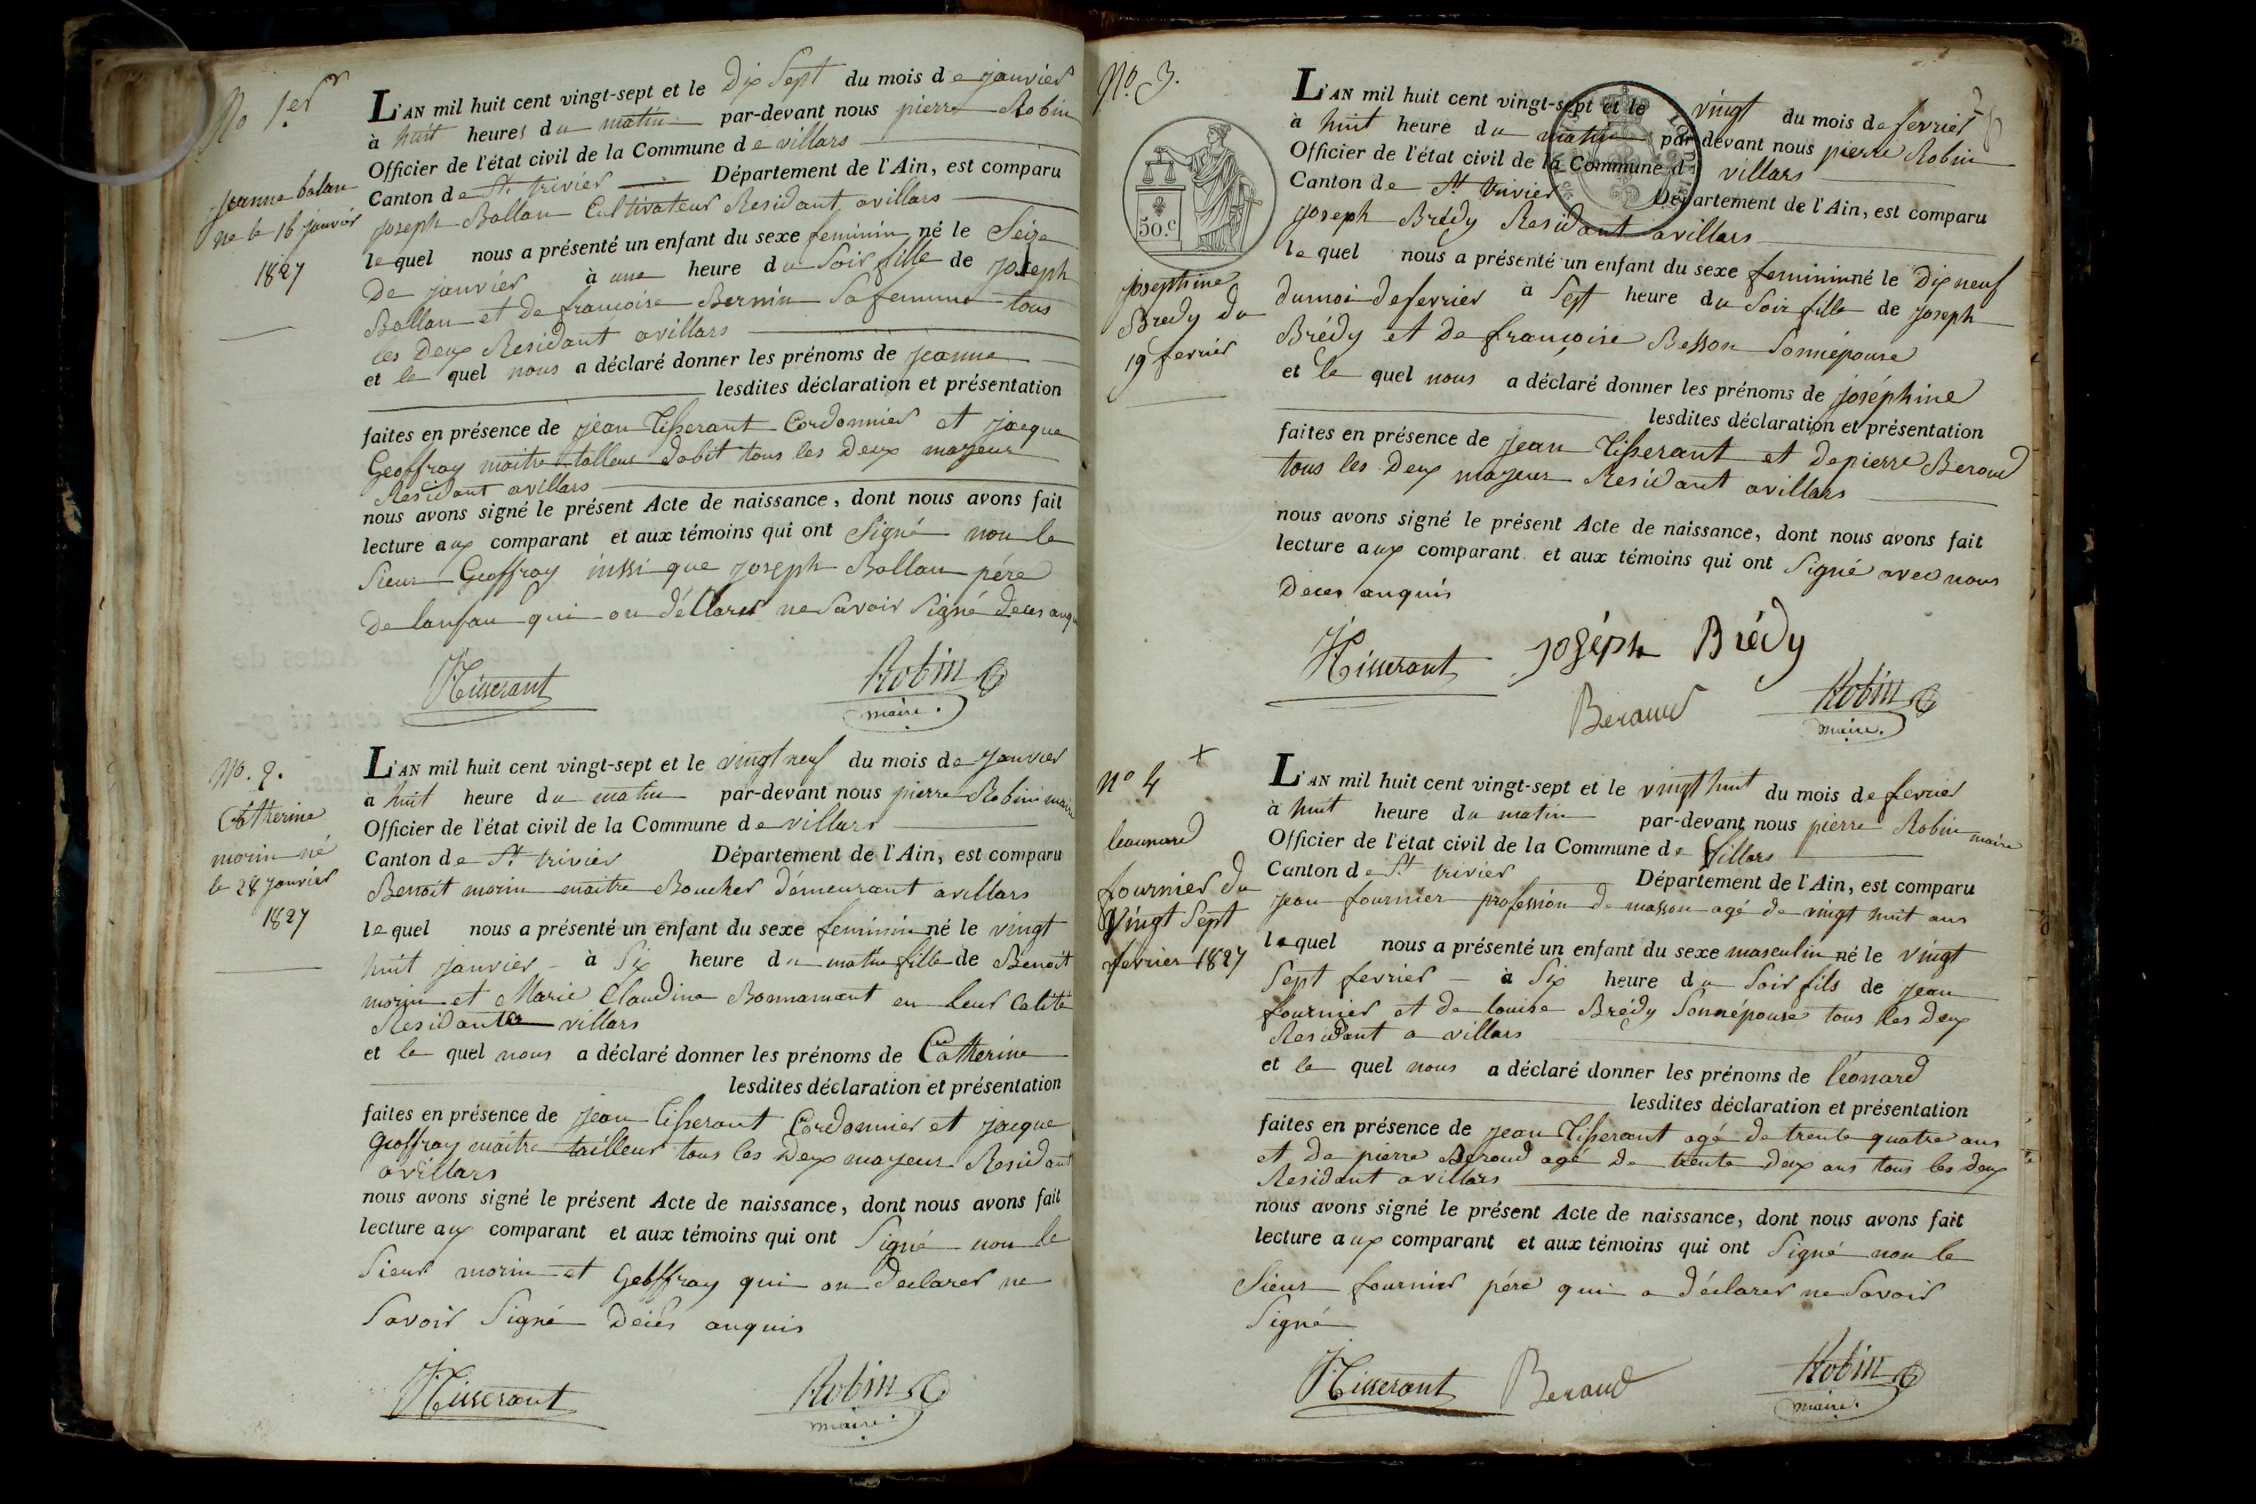 No 1.er
Jeanne balan
né le 16 janvier
1827
L'AN mil huit cent vingt-sept et le Dix Sept du mois de janvier
à huit heures du matin par-devant nous pierre Robin
Officier de l'état civil de la Commune de villars
Canton de St. trivier Département de l'Ain, est comparu
joseph Ballan Cultivateur Residant avillars
lequel nous a présenté un enfant du sexe feminin né le Seize
De janvier à une heure du Soir fille de joseph
Ballan et de francoise Bernin Sa femme tous
les Deux Residant avillars
et le quel nous a déclaré donner les prénoms de jeanne
lesdites déclaration et présentation
faites en présence de jean Tisserant Cordonnier et jacque
Geoffray maitre talleur dabit tous les Deux mayeur
Residant avillars
nous avons signé le présent Acte de naissance, dont nous avons fait
lecture aux comparant et aux témoins qui ont Signé non le
Sieur Geoffray inssi que joseph Ballan pére
De lanfan qui on déClarer ne Savoir Signé deces anq
JTisserant
Robin
maire.
No. 2.
Catherine
morin né
le 28 janvier
1827
L'AN mil huit cent vingt-sept et le vingt neuf du mois de janvier
à huit heure du matin par-devant nous pierre Robin maire
Officier de l'état civil de la Commune de villars
Canton de St. trivier Département de l'Ain, est comparu
Benoit morin maitre Boucher démeurant avillars
lequel nous a présenté un enfant du sexe feminin né le vingt
huit janvier à Six heure du matin fille de Benoit
morin et Marie Claudine Bonnamant en leur calité
Residant a villars
et le quel nous a déclaré donner les prénoms de Catherine
lesdites déclaration et présentation
faites en présence de jean Tisserant Cordonnier et jacque
Geoffray maitre tailleur tous les Deux mayeur Residant
avillars
nous avons signé le présent Acte de naissance, dont nous avons fait
lecture aux comparant et aux témoins qui ont Signé non le
Sieur morin et Geoffray qui on declarer ne
Savoir Signé Deces anquis
JTisserant
Robin
maire.
No. 3.
50.c
josephine
Bredy du
19 ferrier
L'AN mil huit cent vingt-sept et le vingt du mois de ferrier
à huit heure du matin par-devant nous pierre Robin
Officier de l'état civil de la Commune d villars
Canton de St trivier Département de l'Ain, est comparu
joseph Brédy Residant avillars
lequel nous a présenté un enfant du sexe feminin né le Dix neuf
dumoi deferrier à Sept heure du Soir fille de joseph
Brédy et de françoise Besson Sonnépouse
et le quel nous a déclaré donner les prénoms de joséphine
lesdites déclaration et présentation
faites en présence de jean Tisserant et depierre Beroud
tous les Deux mayeur Residant avillars
nous avons signé le présent Acte de naissance, dont nous avons fait
lecture aux comparant et aux témoins qui ont Signé avec nous
Deces anquis
JTisserant
joséph Brédy
Beraud
Robin
maire.
no 4
leaunard
fournier du
Vingt Sept
fevrier 1827
L'AN mil huit cent vingt-sept et le vingt huit du mois de fevrier
à huit heure du matin par-devant nous pierre Robin maire
Officier de l'état civil de la Commune de villars
Canton de St trivier Département de l'Ain, est comparu
jean fournier profession de masson agé de vingt huit ans
lequel nous a présenté un enfant du sexe masculin né le vingt
Sept fevrier à Six heure du Soir fils de jean
fournier et de louise Brédy Sonnépouse tous les Deux
Residant a villars
et le quel nous a déclaré donner les prénoms de léonard
lesdites déclaration et présentation
faites en présence de jean Tisserant agé de trente quatre ans
et De pierre Beroud agé de trente deux ans tous les deux
Residant avillars
nous avons signé le présent Acte de naissance, dont nous avons fait
lecture aux comparant et aux témoins qui ont Signé non le
Sieur fournier pére qui a déclarer ne Savoir
Signé
JTisserant
Beraud
Robin
maire.